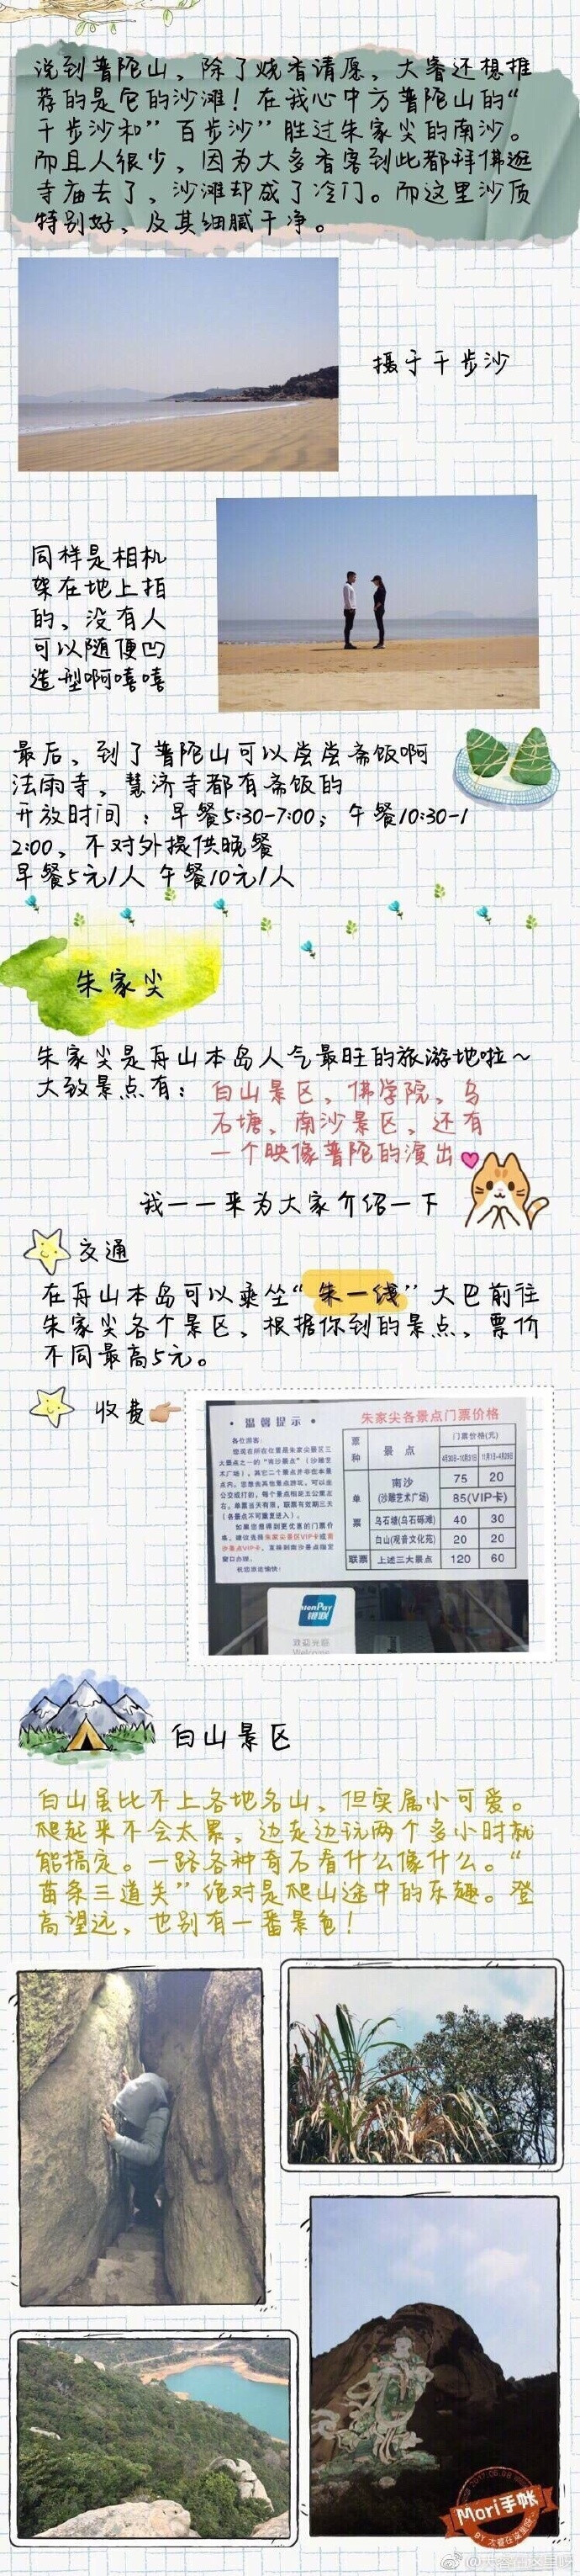 说到普陀山，除了烧香请愿，大睿还想推
荐的是它的沙滩！在我心中方普陀山的“
千步沙和”百步沙”胜过朱家尖的南沙。
而且人很少，因为大多香客到此都拜佛逛
寺庙去了，沙滩却成了冷门。而这里沙质
特别好，及其细腻干净。
摄于千步沙
同样是相机
架在地上拍
的，没有人
可以随便凹
造型啊嘻嘻
最后，到了普陀山可以尝尝斋饭啊
法雨寺，慧济寺都有斋饭的
开放时间：早餐5:30-7:00；午餐10:30-1
2:00，不对外提供晚餐
早餐5元/人 午餐10元/人
朱家尖
朱家尖是舟山本岛人气最旺的旅游地啦～
大致景点有：白山景区，佛学院，乌
石塘，南沙景区，还有
一个映像普陀的演出
我一一来为大家介绍一下
交通
在舟山本岛可以乘坐“朱一线”大巴前往
朱家尖各个景区，根据你到的景点，票价
不同最高5元。
收费
·温馨提示·
各位游客：
朱家尖各景点门票价格
票种 景点 门票价格(元)
4月30日-10月31日 11月1日-4月29日
单票 南沙(沙雕艺术广场) 75 20
85(VIP卡)
乌石塘(乌石砾滩) 40 30
白山(观音文化苑) 20 20
联票 上述三大景点 120 60
UnionPay
银联
欢迎光临
Welcome
白山景区
白山虽比不上各地名山，但实属小可爱。
爬起来不会太累，边走边玩两个多小时就
能搞定。一路各种奇石看什么像什么。“
苗条三道关”绝对是爬山途中的乐趣。登
高望远，也别有一番景色！
Mori手帐